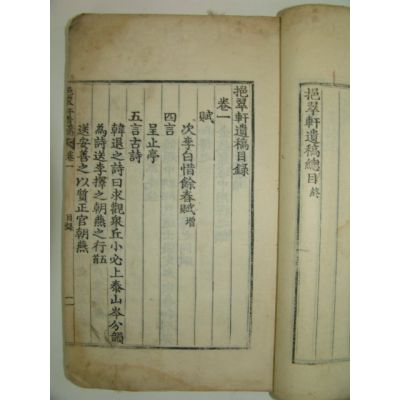 挹翠軒遺稿總目 終
挹翠軒遺稿目録
卷一
賦
次李白惜餘春賦 增
四言
呈止亭
五言古詩
韓退之詩曰求觀衆丘小必上泰山岑分韻
為詩送李擇之朝燕之行
送安善之以質正官朝燕
挹翠軒遺稿 卷一 目録 一